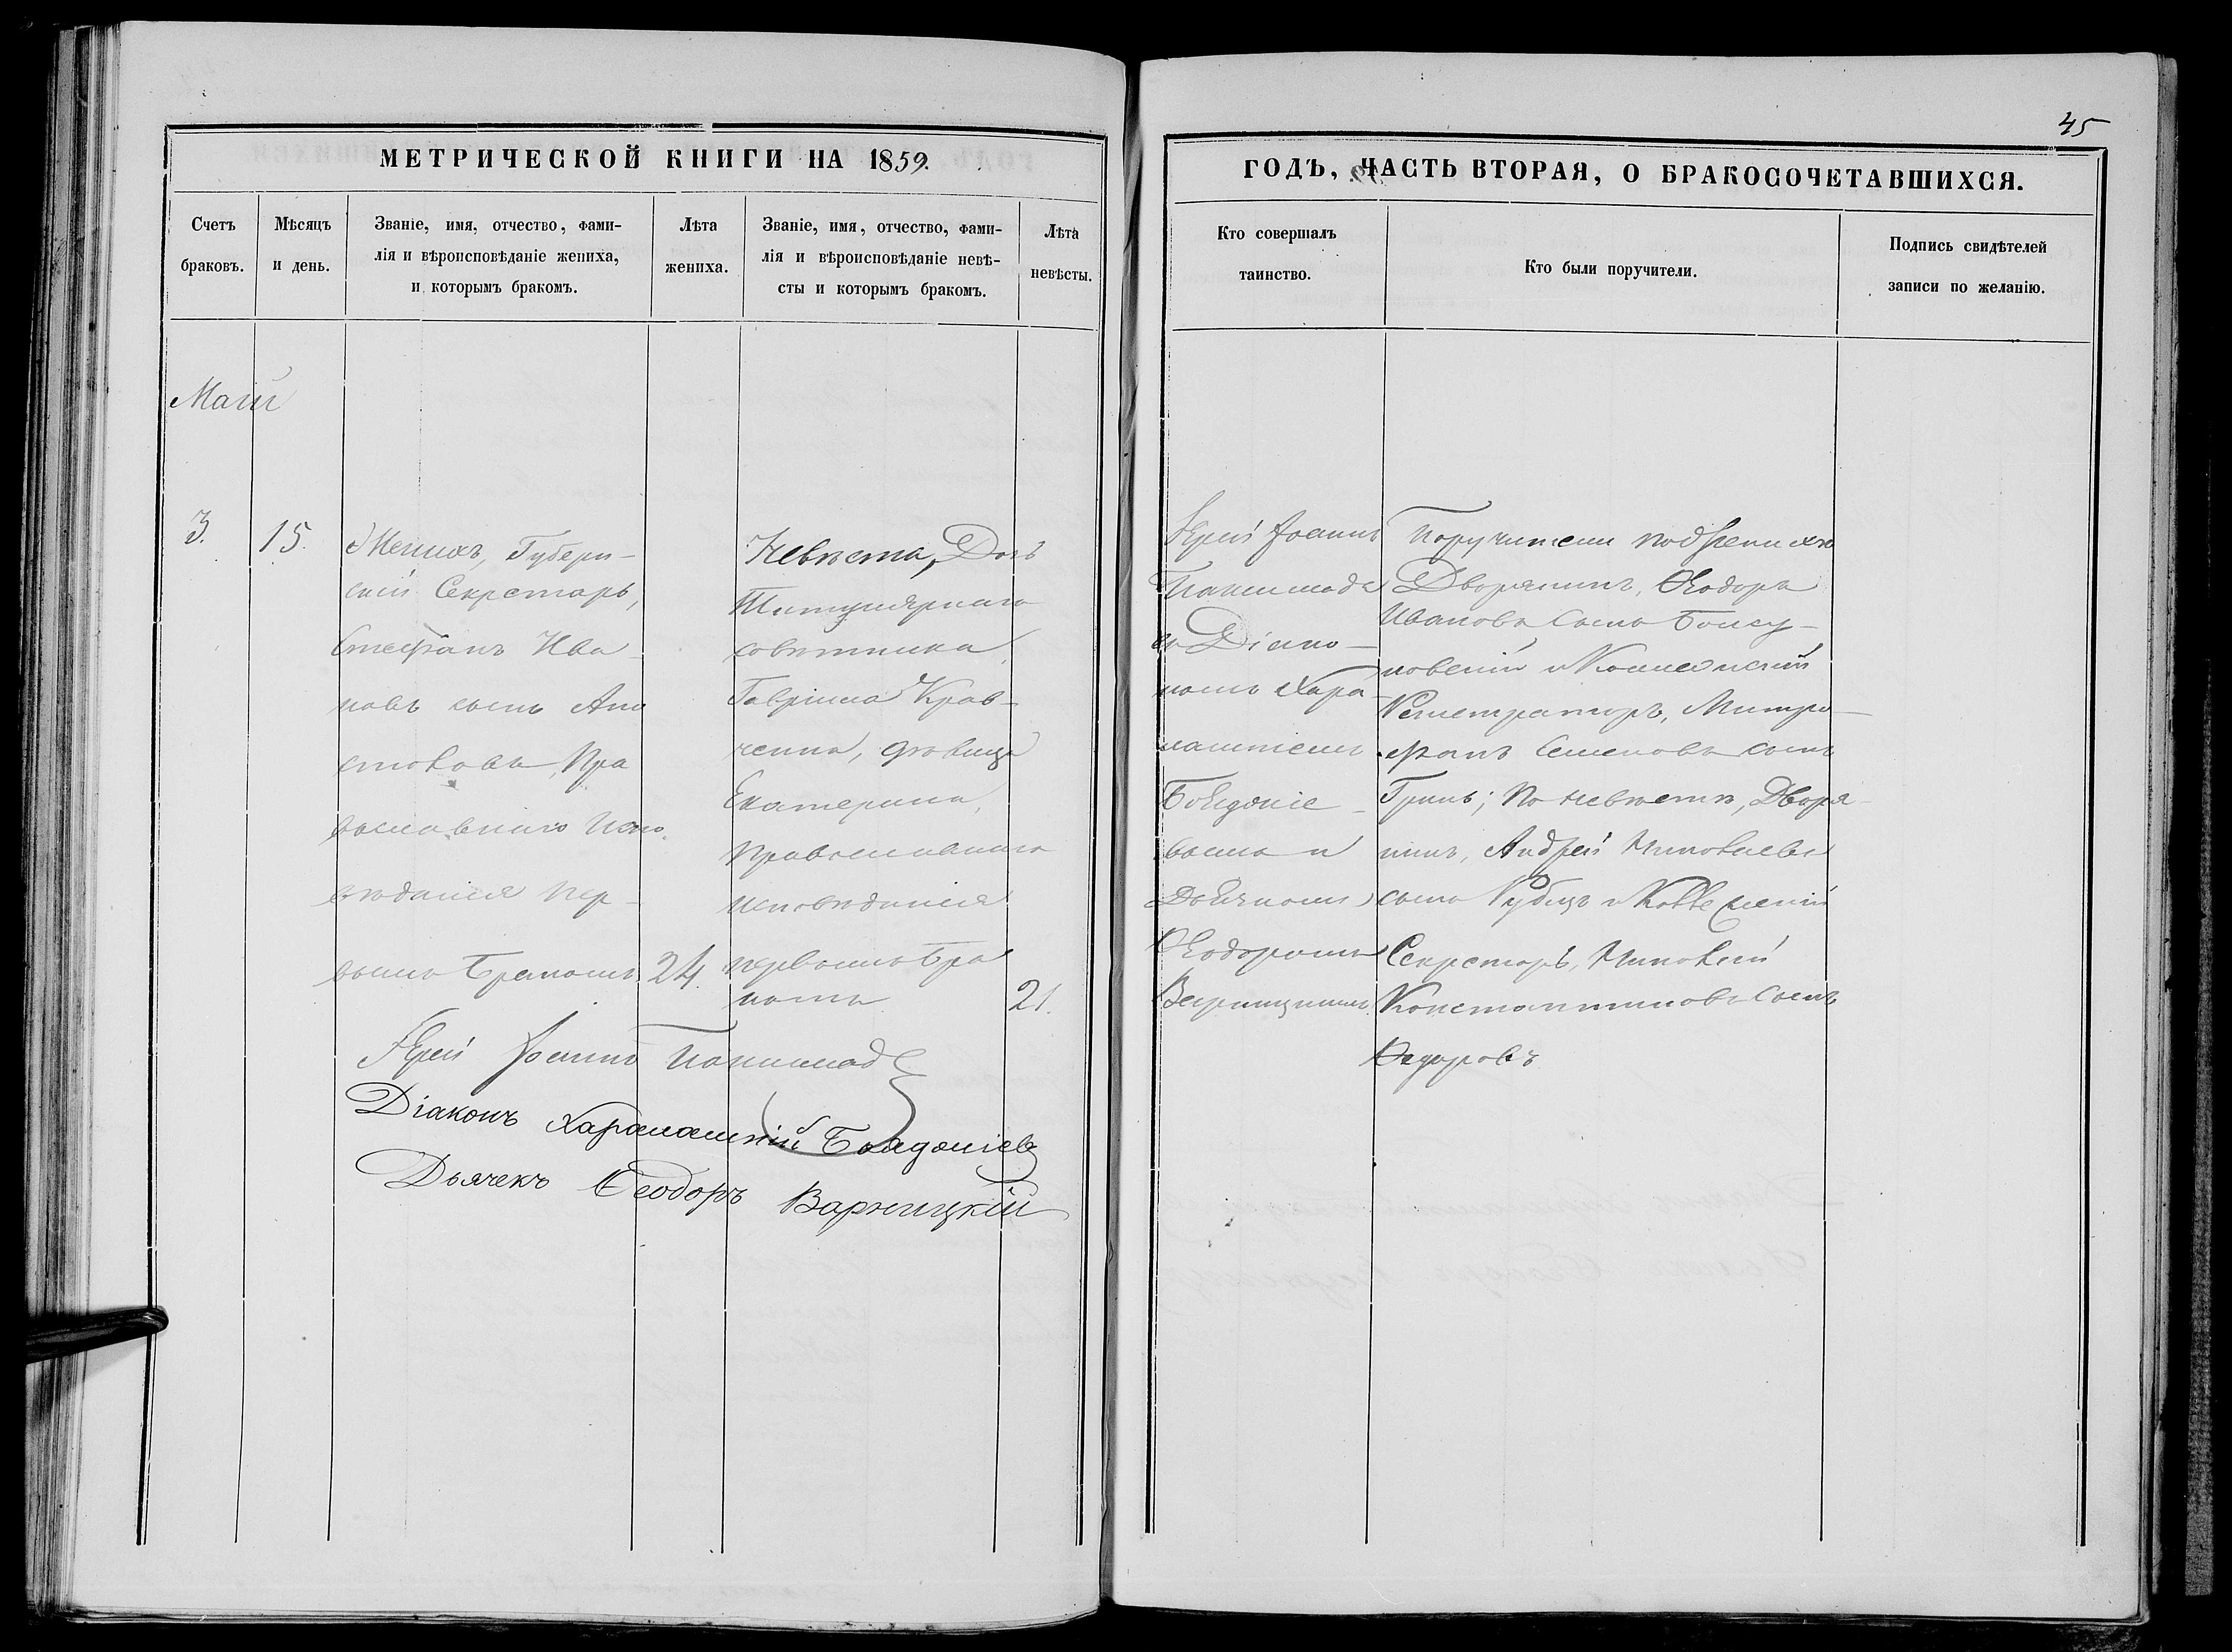 45
МЕТРИЧЕСКОЙ КНИГИ НА 1859.
ГОДЪ, ЧАСТЬ ВТОРАЯ, О БРАКОСОЧЕТАВШИХСЯ.
Счетъ
браковъ.
Мѣсяцъ
и день.
Званіе, имя, отчество, фами-
лія и вѣроисповѣданіе жениха,
и которымъ бракомъ.
Лѣта
жениха.
Званіе, имя, отчество, фами-
лія и вѣроисповѣданіе невѣ-
сты и которымъ бракомъ.
Лѣта
невѣсты.
Кто совершалъ
таинство.
Кто были поручители.
Подпись свидѣтелей
записи по желанію.
Маій
3.
15.
Женихъ, Губерн-
скій Секретарь,
Стефанъ Ива-
новъ сынъ Апо
столовъ, Пра
вославнаго Испо
вѣданія пер-
вымъ Бракомъ.
24.
Невѣста, Дочь
Титулярнаго
совѣтника
Гавріила Крав-
ченка, дѣвица
Екатерина,
Православнаго
исповѣданія
первымъ Бра
комъ
21.
Іерей Іоаннъ
съ Діако-
номъ Хара-
лампіемъ
и
Дьячкомъ
Ѳеодоромъ
Варницкимъ.
Поручители по Женихѣ
Дворянинъ, Ѳеодоръ
Ивановъ сынъ
и Коллежскій
Регистраторъ, Митро-
фанъ Семеновъ сынъ
по невѣстѣ, Дворя-
нинъ, Андрей Николаевъ
сынъ
Секретарь, Николай
Константиновъ сынъ
Ѳедоровъ
Іерей Іоаннъ
Діаконъ Харалампій
Дьячекъ Ѳеодоръ Варницкій